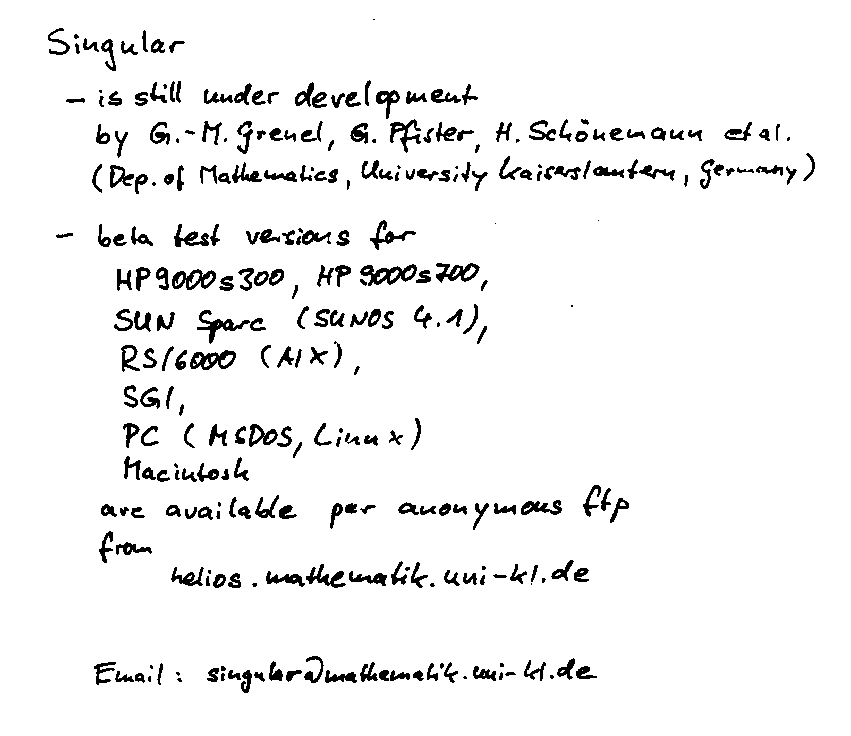 Singular
- is still under development
by G.-M. Greuel, G. Pfister, H. Schönemann et al.
(Dep. of Mathematics, University Kaiserslautern, Germany)
- beta test versions for
HP9000s300, HP9000s700,
SUN Sparc (SUNOS 4.1),
RS/6000 (AIX),
SGI,
PC (MSDOS, Linux)
Macintosh
are available per anonymous ftp
from
helios.mathematik.uni-kl.de
Email: singular@mathematik.uni-kl.de